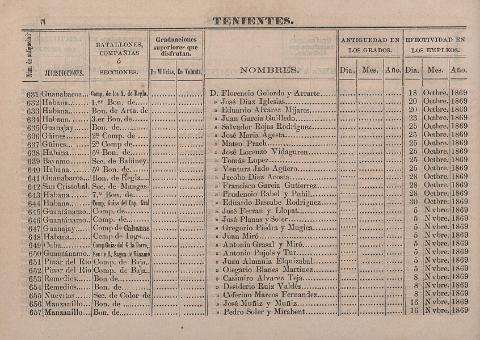 TENIENTES.
Núm. de antigüedad
JURISDICCIONES.
BATALLONES, COMPAÑIAS ó SECCIONES.
Graduaciones superiores que disfrutan.
En Milicias. En Volunts.
NOMBRES.
ANTIGUEDAD EN LOS GRADOS.
Dia. Mes. Año.
EFECTIVIDAD EN LOS EMPLEOS.
Dia. Mes. Año.
631 Guanabacoa Comp. de la S. de Regla. D. Florencio Golordo y Arrarte 18 Octbre. 1869
632 Habana 1.er Bon. de » José Diaz Iglesias 20 Octbre. 1869
633 Habana Bon. de Arts. de » Eduardo Alvarez Mijares 20 Octbre. 1869
634 Habana 3.er Bon. de » Juan Garcia Guilledo 23 Octbre. 1869
635 Guanajay Bon. de » Salvador Rojas Rodriguez 25 Octbre. 1869
636 Güines 2ª Comp. de » José Maria Agosta 25 Octbre. 1869
637 Güines 2ª Comp. de » Mateo Prach 25 Octbre. 1869
638 Habana 5º Bon. de » José Lorenzo Vidaguren 25 Octbre. 1869
639 Bayamo Sec. de Babiney » Tomás Lopez 25 Octbre. 1869
640 Habana 5º Bon. de » Ventura Jado Agüero 25 Octbre. 1869
641 Guanabacoa Bon. de Regla » Jacobo Diaz Acosta 28 Octbre. 1869
642 San Cristobal Sec. de Mangas » Francisco Garcia Gutierrez 28 Octbre. 1869
643 Habana 7.º Bon. de » Prudencio Rabol y Pubill 28 Octbre. 1869
644 Habana Comp. Guias del Cap. Gral » Eduardo Bassabe Rodriguez 30 Octbre. 1869
645 Guantánamo Comp. de » José Ferran y Llopat 5 Nvbre. 1869
646 Guantánamo Comp. de » José Planas y Soler 5 Nvbre. 1869
647 Guanajay Comp de Cabañas » Gregorio Piedra y Mugica 5 Nvbre. 1869
648 Habana Comp de Ings. » Juan Miró 5 Nvbre. 1869
649 Cuba » Antonio Grasal y Miró 5 Nvbre. 1869
650 Guantánamo » Antonio Pujols y Tur 5 Nvbre. 1869
651 Pinar del Rio Comp. de Baja » Juan Almania Elquizabal 5 Nvbre. 1869
652 Pinar del Rio Comp. de Baja » Olegario Blanes Martinez 5 Nvbre. 1869
653 Remedios Bon de » Casimiro Alvarez Teja 8 Nvbre. 1869
654 Remedios Bon. de » Desiderio Ruiz Valdés 8 Nvbre. 1869
655 Nuevitas Sec. de Color de » Ceferino Marcos Fernandez 8 Nvbre. 1869
656 Manzanillo Bon. de » José Muñiz y Muñiz 16 Nvbre. 1869
657 Manzanillo Bon. de » Pedro Soler y Mirabent 16 Nvbre. 1869